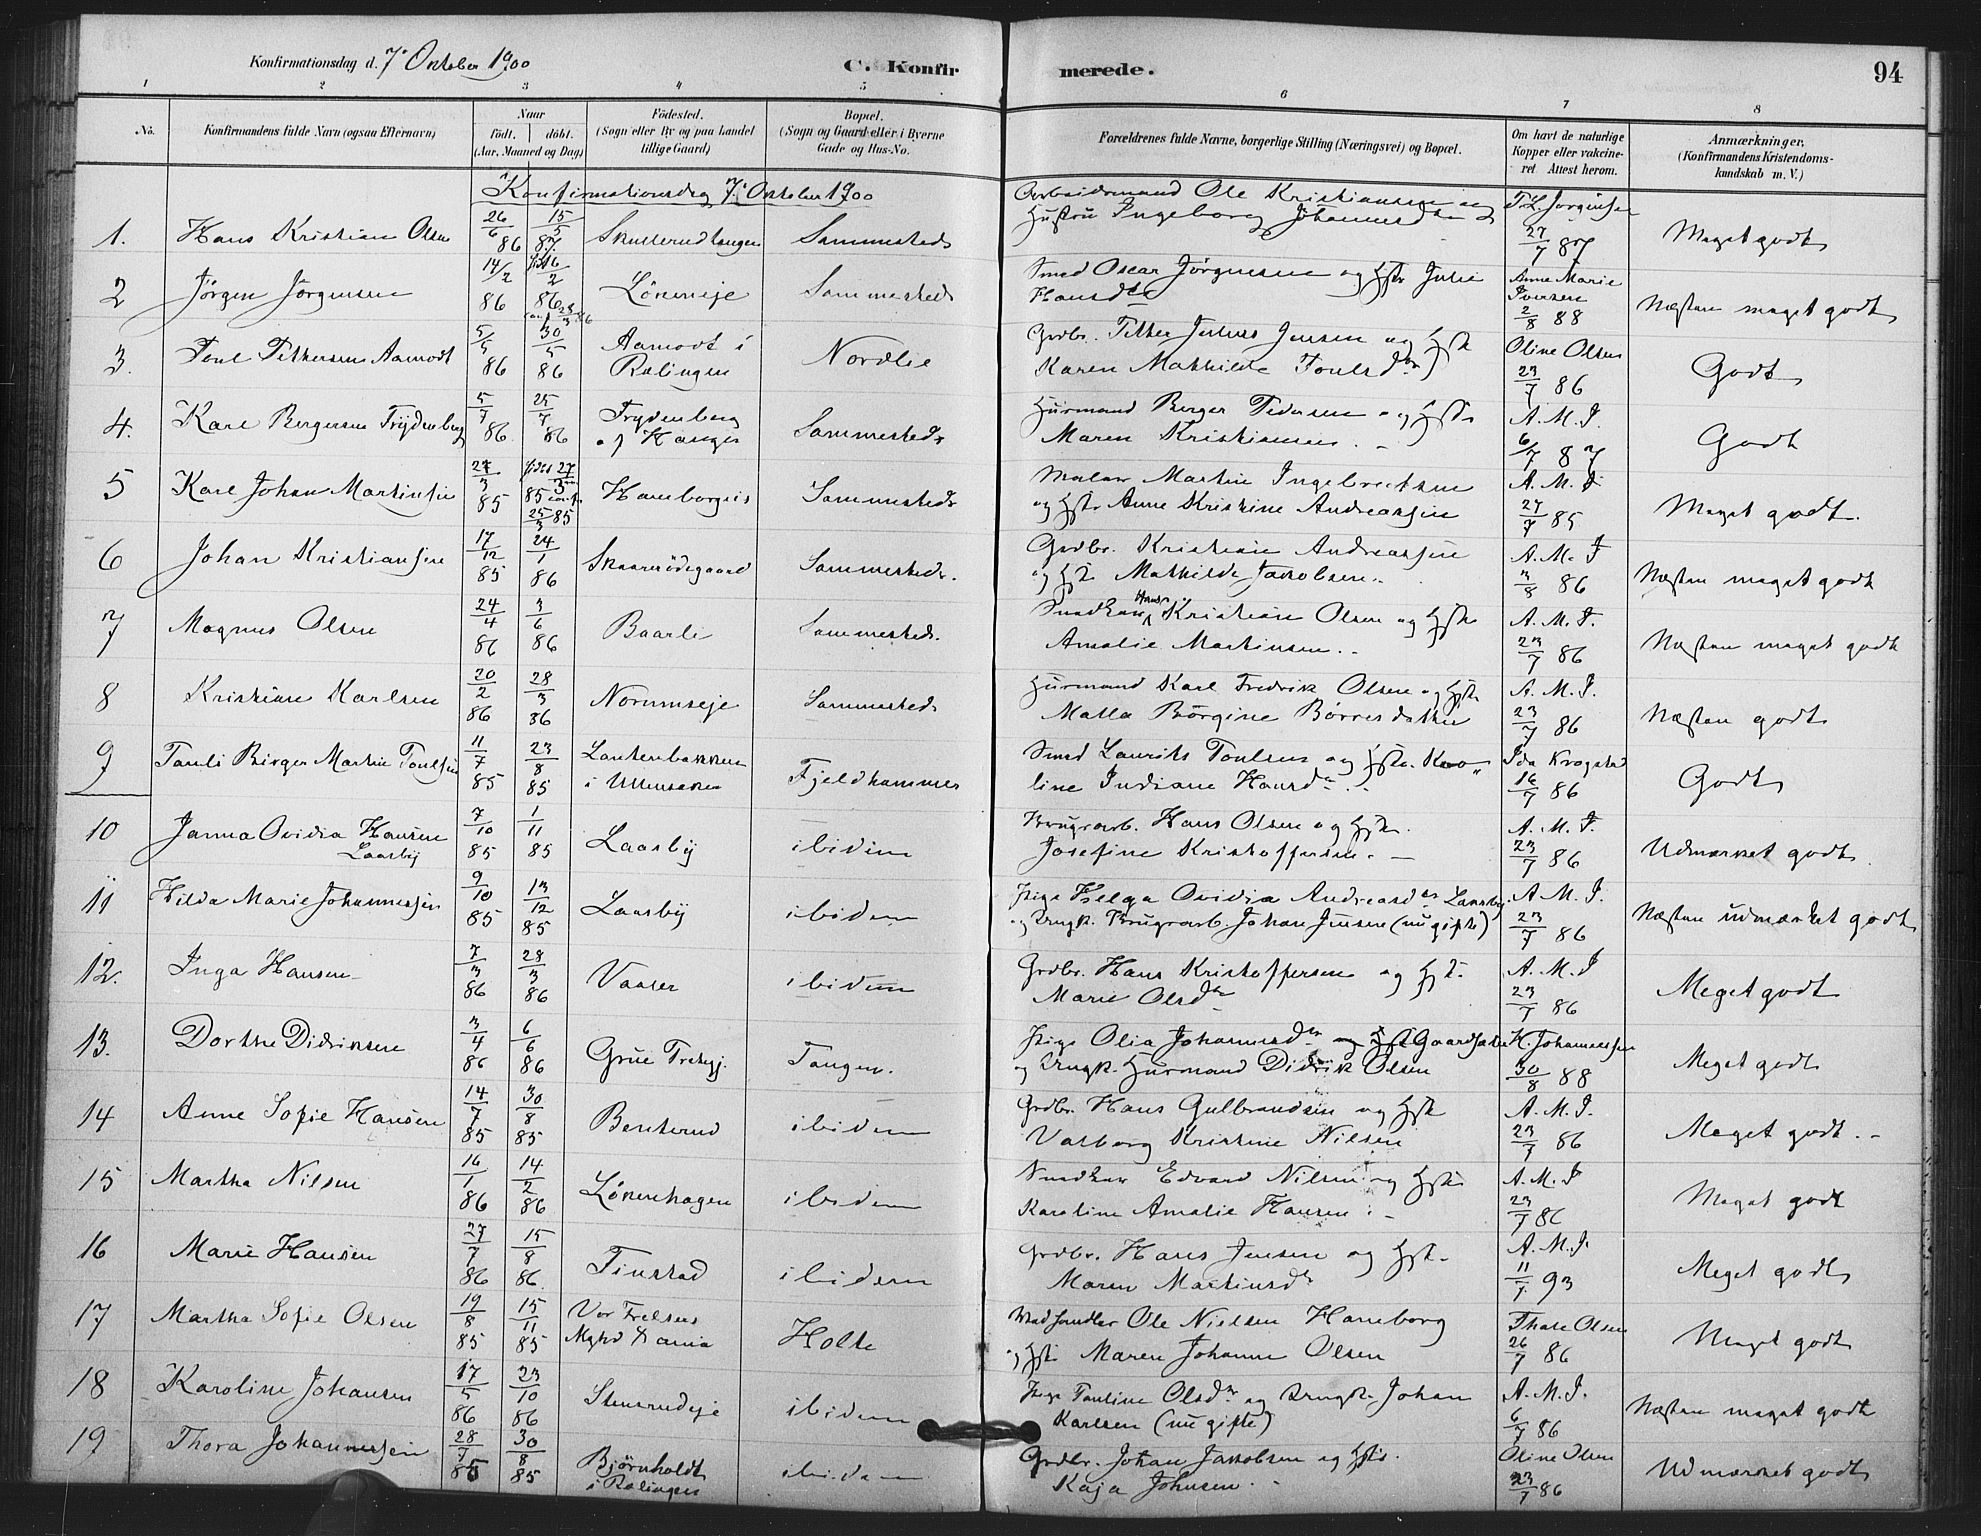 Konfirmationsdag d. 7. October 1900
C. Konfirmerede.
94
1 2 3 4 5 6 7 8
No.
Konfirmandens fulde Navn (ogsaa Efternavn)
Naar
født. døbt.
(Aar, Maaned og Dag)
Fødested.
(Sogn eller By og paa Landet
tillige Gaard)
Bopæl.
(Sogn og Gaard eller i Byerne
Gade og Hus-No.
Forældrenes fulde Navne, borgerlige Stilling (Næringsvei) og Bopæl.
Om havt de naturlige
Kopper eller vakcine-
ret Attest herom.
Anmærkninger,
(Konfirmandens Kristendoms-
kundskab m. V.)
Konfirmationsdag 7. October 1900
1. Hans Kristian Olsen 26/6 86 15/5 87 Skullerudtangen Sammesteds
Arbeidsmand Ole Kristiansen og
Hustru Ingeborg Johannesdtr
T. L. Jørgensen 27/7 87 Meget godt
2 Jørgen Jørgensen 14/2 86 16/2 86 Lørenseje Sammesteds
Smed Oscar Jørgensen og Hstr Julie
Hansdtr
Anne Marie
Iversen 2/8 88 Næsten meget godt
3. Poul Pettersen Aamodt 5/5 86 30/5 86 Aamodt i
Rælingen Nordlie
Grdbr. Petter Julius Jensen og Hstr
Karen Mathilde Poulsdtr
Oline Olsen 23/7 86 Godt
4. Karl Bergersen Frydenberg 5/7 86 25/7 86 Frydenberg
af Hauger Sammesteds
Husmand Berger Pedersen og Hstr
Maren Kristiansen
A. M. I. 6/7 87 Godt
5 Karl Johan Martinsen 24/3 85 27/3 85 conf. 25/3 85 Haneborgeie Sammesteds
Maler Martin Ingebretsen
og Hstr Anne Kristine Andreassen
A. M. I 27/7 85 Meget godt.
6 Johan Kristiansen 17/12 85 24/1 86 Skaarerødegaard Sammesteds.
Grdbr. Kristian Andreassen
og Hst. Mathilde Jakobsen
A. M. I 3/8 86 Næsten meget godt
7 Magnus Olsen 24/4 86 3/6 86 Baarli Sammesteds.
Snedker Hans Kristian Olsen og Hstr
Amalie Martinsen
A. M. I. 23/7 86 Næsten meget godt
8 Kristian Karlsen 20/2 86 28/3 86 Nordmseje Sammesteds
Husmand Karl Fredrik Olsen og Hstr
Malla Børgine Børresdatter
A. M. I. 23/7 86 Næsten godt
9 Pauli Birger Martin Poulsen 11/7 85 23/8 85 Lankenbakken
i Ullensaker Fjeldhammer
Smed Laurits Poulsen og Hstr. Karo-
line Indiane Hansdtr
Ida Krogstad 16/7 86 Godt
10 Janna Ovidia Hansen
Laasby 7/10 85 1/11 85 Laasby ibidem
Brugsarb. Hans Olsen og Hstr.
Josefine Kristoffersen
A. M. I. 23/7 86 Udmærket godt
11 Hilda Marie Johannessen 9/10 85 13/12 85 Laasby ibidem
Pige Helga Ovidia Andreasdtr Laasby
og Ungk. Brugsarb. Johan Jensen (nu gifte)
A. M. I. 23/7 86 Næsten udmærket godt
12. Inga Hansen 7/3 86 28/3 86 Vaaler ibidem
Grdbr. Hans Kristoffersen og Hst.
Marie Olsdtr
A. M. I 23/7 86 Meget godt
13. Dorthe Didriksen 3/4 86 6/6 86 Grue Prestgj. Tangen.
Pige Olia Johannesdtr
og Ungk. Husmand Didrik Olsen
H. Johannessen 30/8 88 Meget godt
14 Anne Sofie Hansen 14/7 85 30/8 85 Benterud ibidem
Grdbr. Hans Gulbrandsen og Hstr
Valborg Kristine Nilsen
A. M. I. 23/7 86 Meget godt.
15 Martha Nilsen 16/1 86 14/2 86 Lørenhagen ibidem
Snedker Edvard Nilsen og Hstr
Karoline Amalie Hansen
A. M. I 23/7 86 Meget godt
16 Marie Hansen 27/7 86 15/8 86. Finstad ibidem
Grdbr. Hans Jensen og Hstr.
Maren Martinsdtr
A. M. I. 11/7 93 Meget godt
17 Martha Sofie Olsen 19/8 85 15/11 85 Vor Frelsers
Mghd Xania Holte
Vedhandler Ole Nielsen Haneborg
og Hstr Maren Johanne Olsen
Thale Olsen 26/7 86 Meget godt
18 Karoline Johansen 17/5 86 23/10 86 Stensrudeje ibidem
Pige Pauline Olsdtr og Ungk. Johan
Karlsen (nu gifte)
A. M. I. 6/7 86 Næsten meget godt
19 Thora Johannessen 28/7 85 30/8 85 Bjørnholdt
i Rælingen ibidem
Grdbr. Johan Jakobsen og Hstr.
Kaja Johnsen
Oline Olsen 23/7 86 Udmærket godt